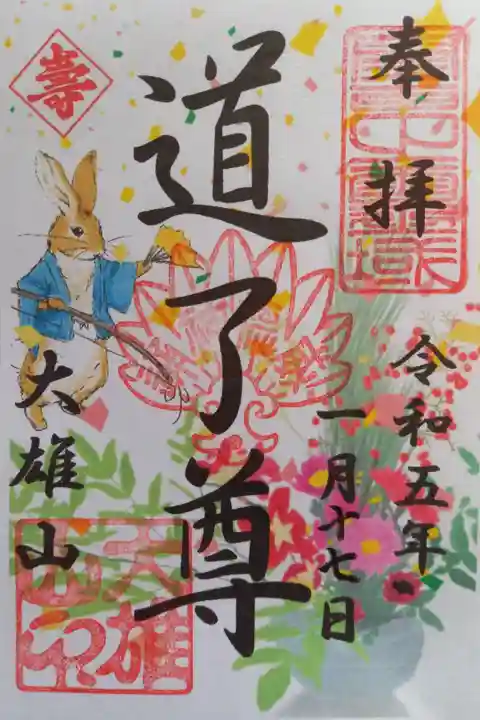 奉拝
令和五年
一月十七日
道了尊
壽
大雄山